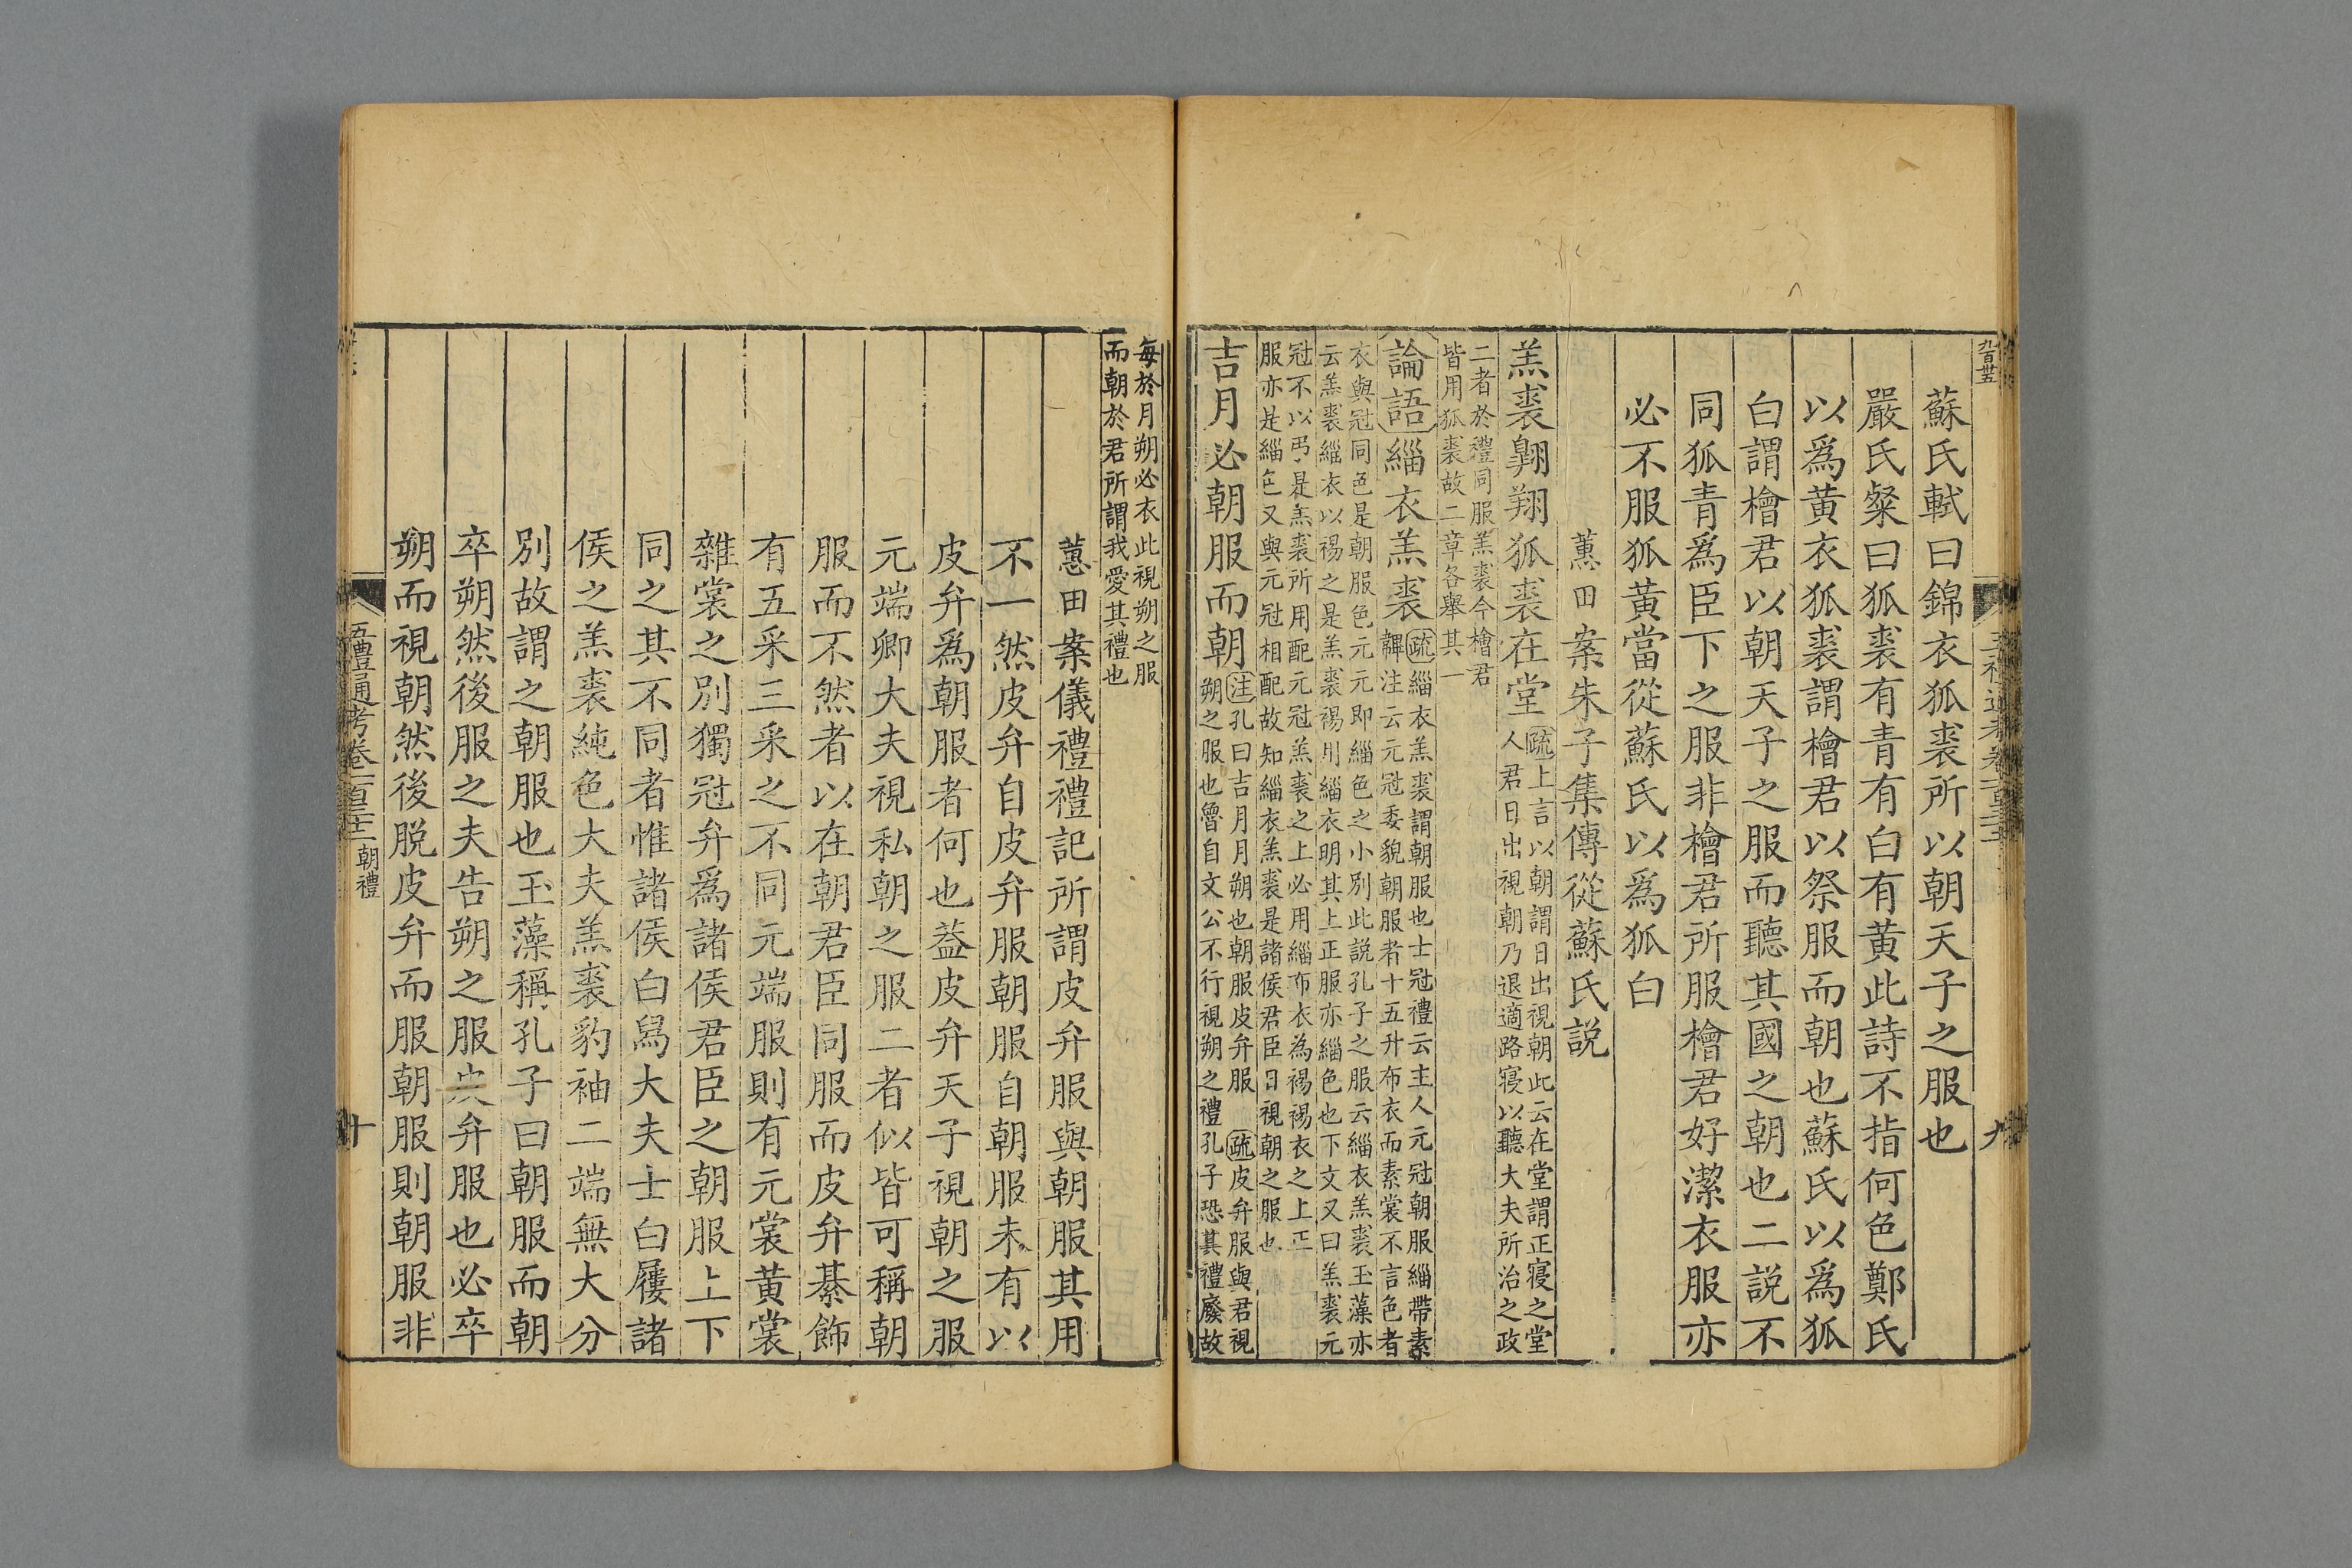 蘇氏軾曰錦衣狐裘所以朝天子之服也
嚴氏粲曰狐裘有青有白有黄此詩不指何色鄭氏
以爲黄衣狐裘謂檜君以祭服而朝也蘇氏以爲狐
白謂檜君以朝天子之服而聽其國之朝也二説不
同狐青爲臣下之服非檜君所服檜君好潔衣服亦
必不服狐黄當從蘇氏以爲狐白
蕙田案朱子集傳從蘇氏説
羔裘翱翔狐裘在堂
疏上言以朝謂日出視朝此云在堂謂正寢之堂
人君日出視朝乃退適路寢以聽大夫所治之政
二者於禮同服羔裘今檜君
皆用狐裘故二章各舉其一
論語緇衣羔裘
疏緇衣羔裘謂朝服也士冠禮云主人元冠朝服緇帶素
韠注云元冠委貌朝服者十五升布衣而素裳不言色者
衣與冠同色是朝服色元元即緇色之小別此説孔子之服云緇衣羔裘玉藻亦
云羔裘緇衣以裼之是羔裘裼用緇衣明其上正服亦緇色也下文又曰羔裘元
冠不以弔是羔裘所用配元冠羔裘之上必用緇布衣為裼裼衣之上正
服亦是緇色又與元冠相配故知緇衣羔裘是諸侯君臣日視朝之服也
吉月必朝服而朝
注孔曰吉月月朔也朝服皮弁服 疏皮弁服與君視
朔之服也魯自文公不行視朔之禮孔子恐其禮廢故
九
每於月朔必衣此視朔之服
而朝於君所謂我愛其禮也
蕙田案儀禮禮記所謂皮弁服與朝服其用
不一然皮弁自皮弁服朝服自朝服未有以
皮弁爲朝服者何也葢皮弁天子視朝之服
元端卿大夫視私朝之服二者似皆可稱朝
服而不然者以在朝君臣同服而皮弁綦飾
有五采三采之不同元端服則有元裳黄裳
雜裳之別獨冠弁爲諸侯君臣之朝服上下
同之其不同者惟諸侯白舄大夫士白屨諸
侯之羔裘純色大夫羔裘豹袖二端無大分
別故謂之朝服也玉藻稱孔子曰朝服而朝
卒朔然後服之夫告朔之服皮弁服也必卒
朔而視朝然後脱皮弁而服朝服則朝服非
五禮通考卷一百三十二 朝禮
十